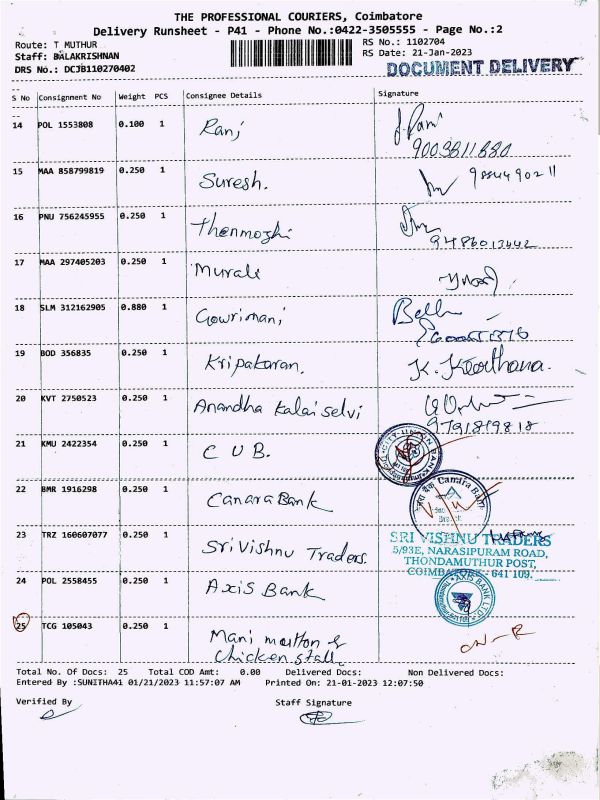 THE PROFESSIONAL COURIERS, Coimbatore
Delivery Runsheet - P41 - Phone No.:0422-3505555 - Page No.:2
Route: T MUTHUR RS No.: 1102704
Staff: BALAKRISHNAN RS Date: 21-Jan-2023
DRS No.: DCJB110270402 DOCUMENT DELIVERY
S No Consignment No Weight PCS Consignee Details Signature
14 POL 1553808 0.100 1 Ranj
15 MAA 858799819 0.250 1 Suresh.
16 PNU 756245955 0.250 1 Thenmozhi
17 MAA 297405203 0.250 1 Murali
18 SLM 312162905 0.880 1 Gowrimani
19 BOD 356835 0.250 1 Kripakaran. K. Keerthana.
20 KVT 2750523 0.250 1 Anandha Kalai selvi
9791819818
21 KMU 2422354 0.250 1 C U B. CITY UNION BANK
22 BMR 1916298 0.250 1 Canara Bank Canara Bank
23 TRZ 160607077 0.250 1 Sri Vishnu Traders. SRI VISHNU TRADERS
5/93E, NARASIPURAM ROAD,
THONDAMUTHUR POST,
COIMBATORE - 641 109.
24 POL 2558455 0.250 1 Axis Bank AXIS BANK LTD
25 TCG 105043 0.250 1 Mani mutton &
Chicken stall.
Total No. Of Docs: 25 Total COD Amt: 0.00 Delivered Docs: Non Delivered Docs:
Entered By :SUNITHA41 01/21/2023 11:57:07 AM Printed On: 21-01-2023 12:07:50
Verified By Staff Signature